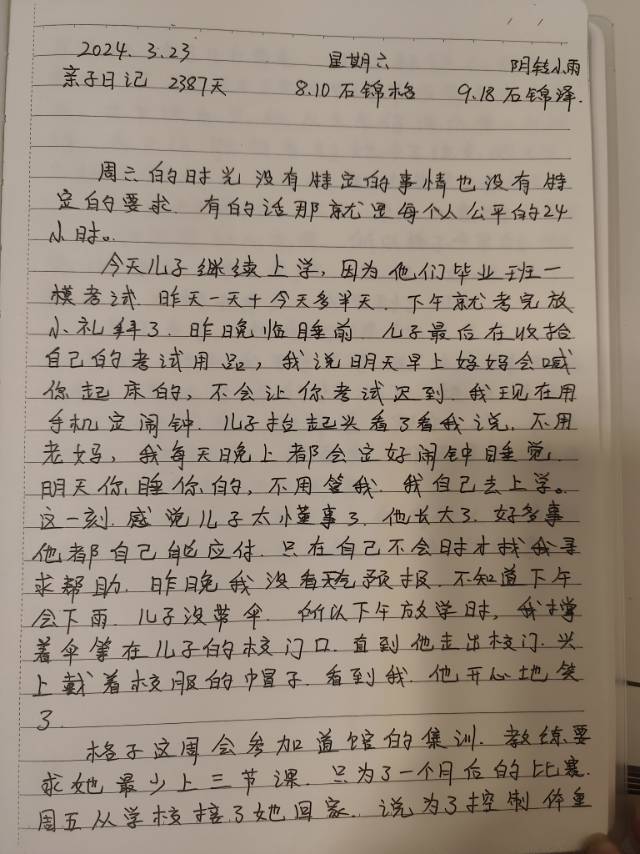 2024.3.23 星期六 阴转小雨
亲子日记 2387天 8.10石锦格 9.18石锦泽.
周六的时光没有特定的事情也没有特
定的要求.有的话那就是每个人公平的24
小时。
今天儿子继续上学,因为他们毕业班一
模考试.昨天一天+今天多半天.下午就考完放
小礼拜了.昨晚临睡前.儿子最后在收拾
自己的考试用品,我说明天早上妈妈会喊
你起床的,不会让你考试迟到.我现在用
手机定闹钟.儿子抬起头看了看我说,不用
老妈,我每天晚上都会定好闹钟睡觉.
明天你睡你的,不用管我.我自己去上学。
这一刻.感觉儿子太懂事了.他长大了.好多事
他都自己能应付.只在自己不会时才找我寻
求帮助.昨晚我没看天气预报.不知道下午
会下雨.儿子没带伞.所以下午放学时,我撑
着伞等在儿子的校门口.直到他走出校门.头
上戴着校服的帽子.看到我.他开心地笑
了.
格子这周会参加道馆的集训.教练要
求她最少上三节课.只为了一个月后的比赛.
周五从学校接了她回家.说为了控制体重